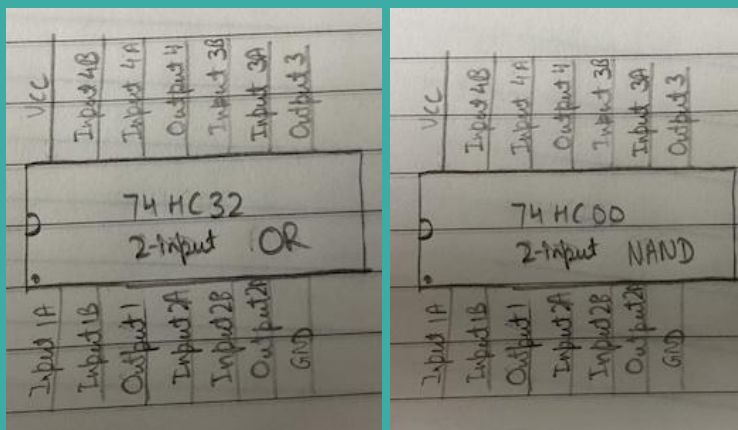 VCC
Input 4B
Input 4A
Output 4
Input 3B
Input 3A
Output 3
74 HC 32
2-input OR
Input 1A
Input 1B
Output 1
Input 2A
Input 2B
GND
VCC
Input 4B
Input 4A
Output 4
Input 3B
Input 3A
Output 3
74 HC 00
2-input NAND
Input 1A
Input 1B
Output 1
Input 2A
Input 2B
GND